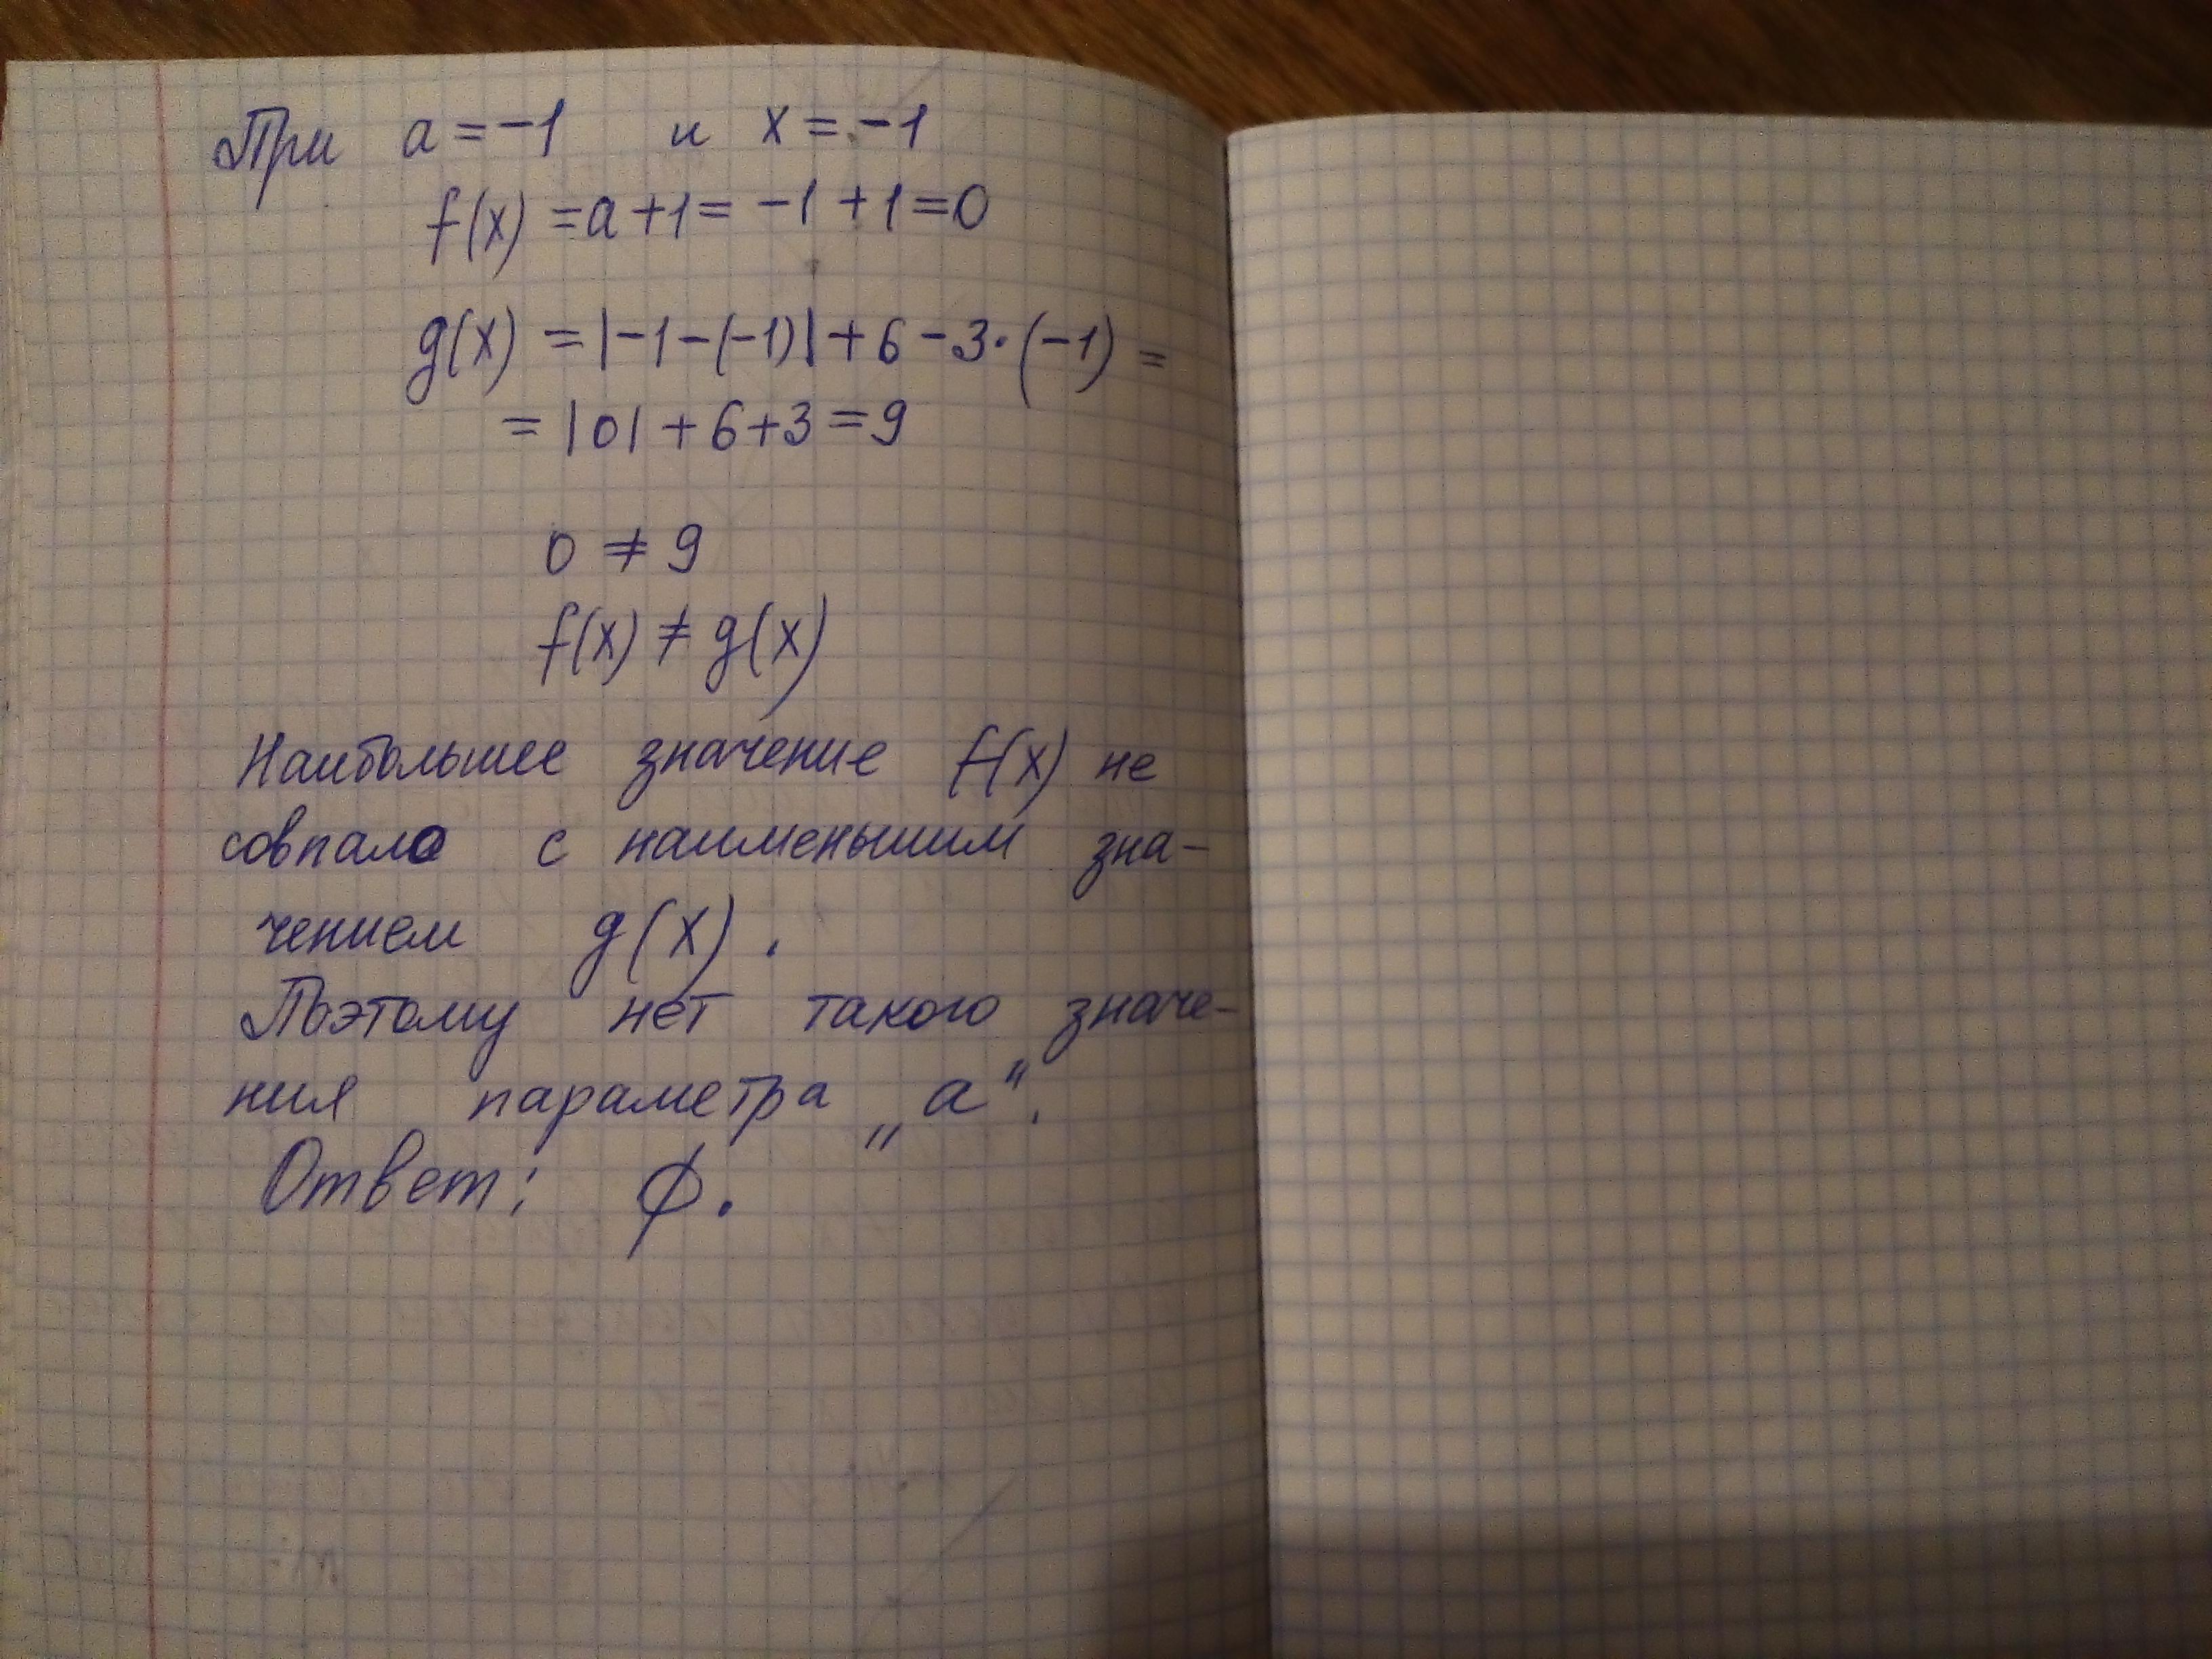 При a = -1 и x = -1
f(x) = a + 1 = -1 + 1 = 0
g(x) = |-1 - (-1)| + 6 - 3·(-1) =
= |0| + 6 + 3 = 9
0 ≠ 9
f(x) ≠ g(x)
Наибольшее значение f(x) не
совпало с наименьшим зна-
чением g(x).
Поэтому нет такого значе-
ния параметра „a“.
Ответ: ∅.